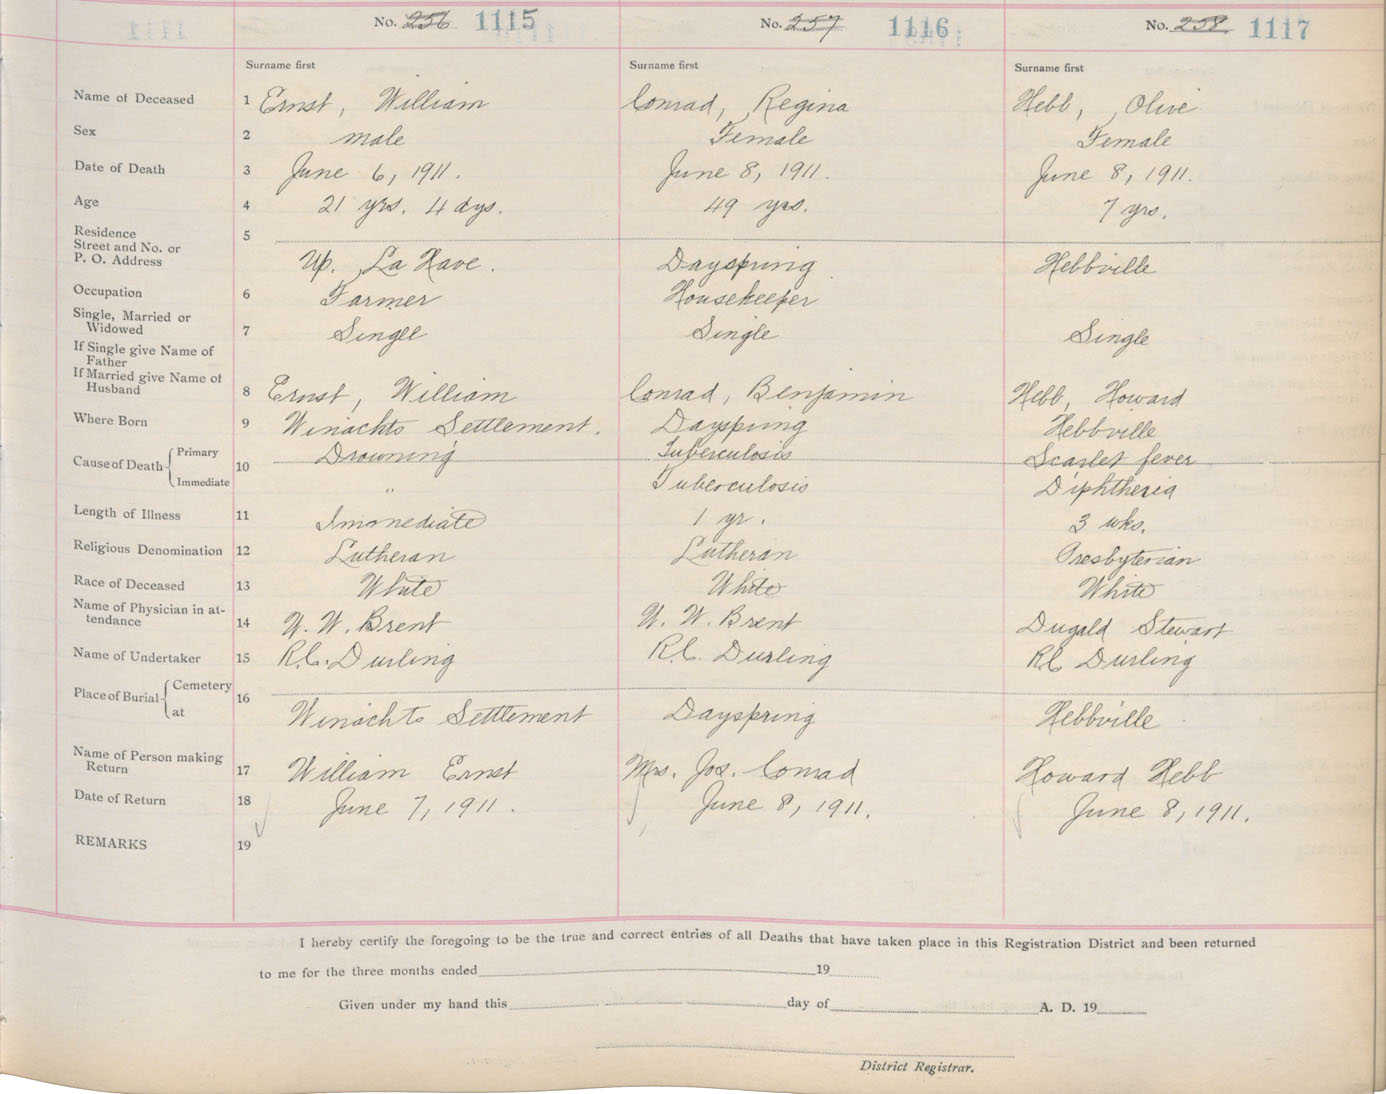 No. 256 1115 No. 257 1116 No. 258 1117
Surname first Surname first Surname first
Name of Deceased 1 Ernst, William Conrad, Regina Hebb, Olive
Sex 2 male Female Female
Date of Death 3 June 6, 1911. June 8, 1911. June 8, 1911.
Age 4 21 yrs. 4 dys. 49 yrs. 7 yrs.
Residence 5
Street and No. or
P. O. Address Up. La Have. Dayspring Hebbville
Occupation 6 Farmer Housekeeper
Single, Married or
Widowed 7 Single Single Single
If Single give Name of
Father
If Married give Name of
Husband 8 Ernst, William Conrad, Benjamin Hebb, Howard
Where Born 9 Winachts Settlement. Dayspring Hebbville
Cause of Death 10 Primary Drowning Tuberculosis Scarlet fever
Immediate " Tuberculosis Diphtheria
Length of Illness 11 Immediate 1 yr. 3 wks.
Religious Denomination 12 Lutheran Lutheran Presbyterian
Race of Deceased 13 White White White
Name of Physician in at-
tendance 14 W. Brent W. Brent Dugald Stewart
Name of Undertaker 15 R.C. Durling R.C. Durling R.C. Durling
Place of Burial 16 Cemetery
at Winachts Settlement Dayspring Hebbville
Name of Person making
Return 17 William Ernst Mrs. Jos. Conrad Howard Hebb
Date of Return 18 June 7, 1911. June 8, 1911. June 8, 1911.
REMARKS 19
I hereby certify the foregoing to be the true and correct entries of all Deaths that have taken place in this Registration District and been returned
to me for the three months ended 19
Given under my hand this day of A. D. 19
District Registrar.